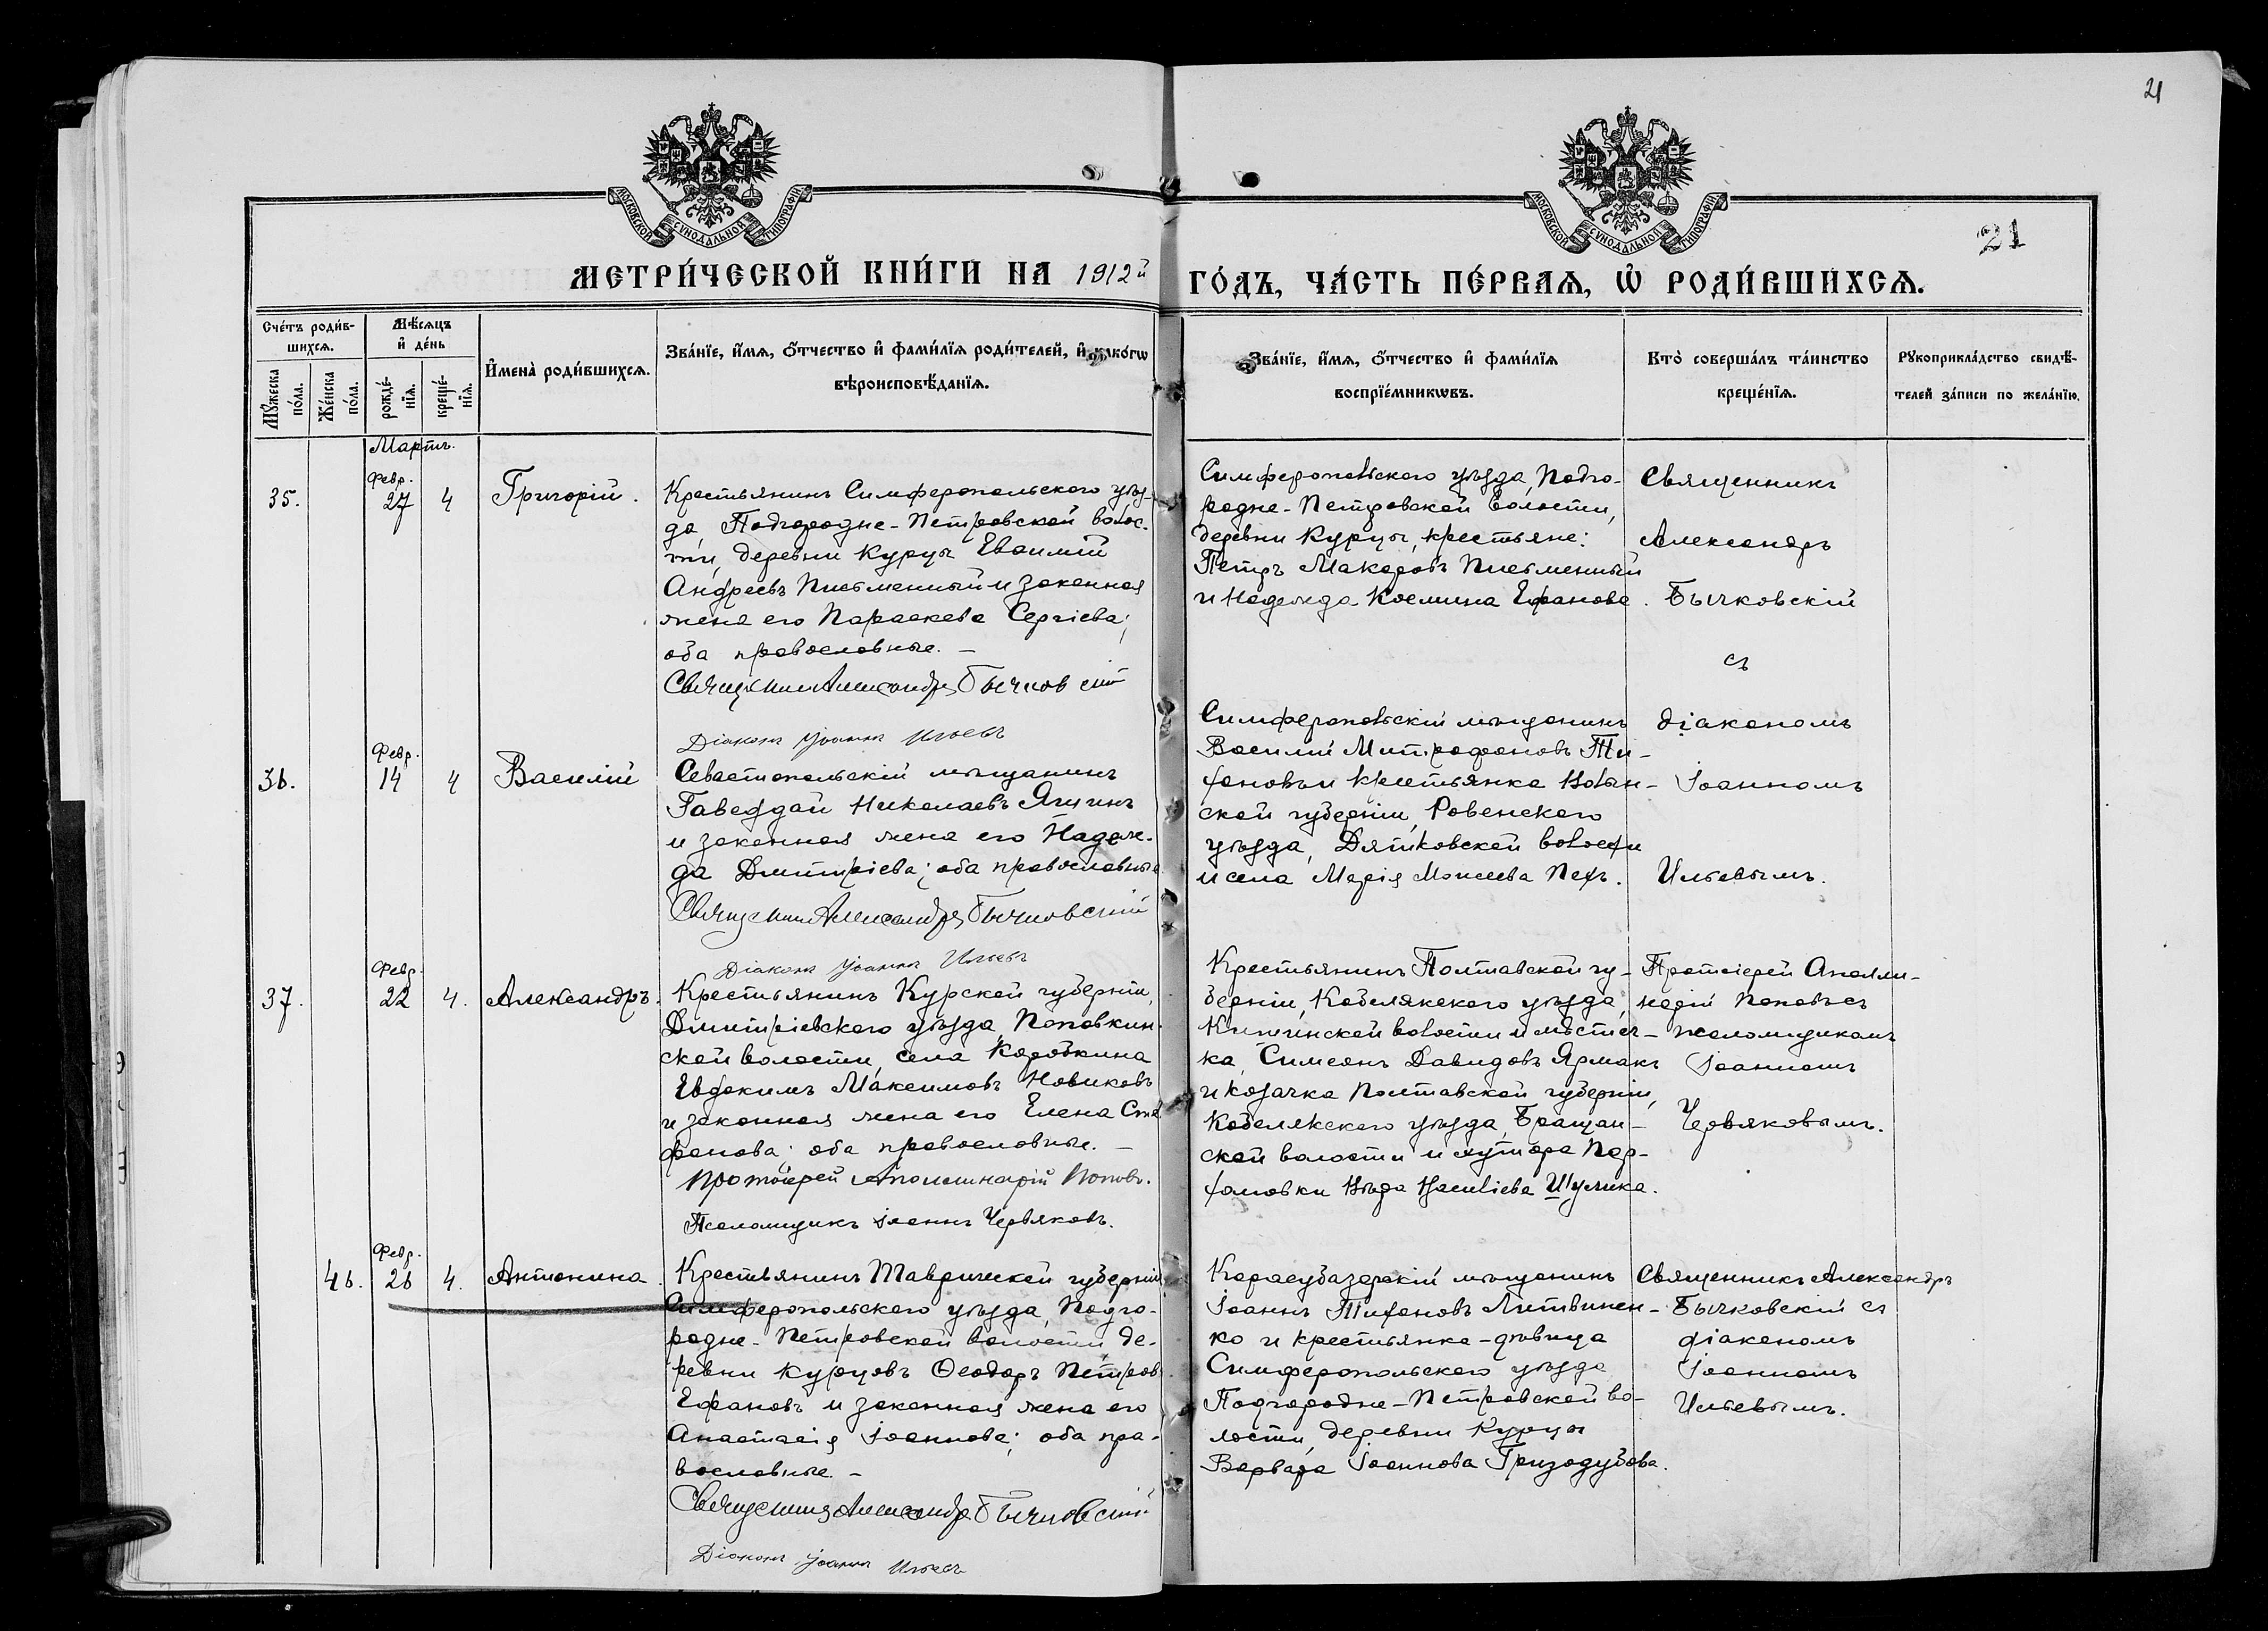 21
21
МОСКОВСКОЙ СУНОДАЛЬНОЙ ТИПОГРАФІИ
МОСКОВСКОЙ СУНОДАЛЬНОЙ ТИПОГРАФІИ
МЕТРИ́ЧЕСКОЙ КНИ́ГИ НА 1912й ГО́ДЪ, ЧА́СТЬ ПЕ́РВАѦ, Ѽ РОДИ́ВШИХСѦ.
Сче́тъ роди́в-
шихсѧ.
Мꙋ́жеска
по́ла.
Же́нска
по́ла.
Мѣ́сѧцъ
и҆ де́нь
рожде́-
нїѧ.
креще́-
нїѧ.
И҆мена̀ роди́вшихсѧ.
Зва́нїе, и҆́мѧ, ѻ҆́тчество и҆ фами́лїѧ роди́телей, и҆ како́гѡ
вѣроисповѣ́данїѧ.
Зва́нїе, и҆́мѧ, ѻ҆́тчество и҆ фами́лїѧ
воспрїе́мникѡвъ.
Кто̀ соверша́лъ та́инство
креще́нїѧ.
Рꙋкоприкла́дство свидѣ́-
телей за́писи по жела́нїю.
Мартъ.
35.
Февр.
27
4
Григорій.
Крестьянинъ Симферопольскаго уѣз-
да, Подгородне-Петровской волос-
ти, деревни Курцы Евѳимій
Андреевъ Письменный и законная
жена его Параскева Сергіева;
оба православные. —
Священникъ Александръ Бычковскій
Діаконъ Іоаннъ Ильевъ
Симферопольскаго уѣзда, Подго-
родне-Петровской волости,
деревни Курцы, крестьяне:
Петръ Макаровъ Письменный
и Надежда Космина Ефанова.
Священникъ
Александръ
Бычковскій
съ
діакономъ
Іоанномъ
Ильевымъ.
36.
Февр.
14
4
Василій
Севастопольскій мѣщанинъ
Николаевъ Ягупинъ
и законная жена его Надеж-
да Дмитріева; оба православные
Священникъ Александръ Бычковскій
Діаконъ Іоаннъ Ильевъ
Симферопольскій мѣщанинъ
Василій Митрофановъ Ти-
хановъ и крестьянка Волын-
ской губерніи, Ровенскаго
уѣзда, Дятковской волости
и села Марія Моисеева Пехъ.
37.
Февр.
22
4.
Александръ.
Крестьянинъ Курской губерніи,
Дмитріевскаго уѣзда, Поповкин-
ской волости, села Коробкина
Евдокимъ Максимовъ Новиковъ
и законная жена его Елена Сте-
фанова; оба православные. —
Протоіерей Аполлинарій Поповъ.
Псаломщикъ Іоаннъ Червяковъ.
Крестьянинъ Полтавской гу-
берніи, Кобелякскаго уѣзда,
волости и мѣстеч-
ка, Симеонъ Давидовъ Ярмакъ
и козачка Полтавской губерніи,
Кобелякскаго уѣзда,
ской волости и хутора Пар-
Вѣра Васильева Шулика.
Протоіерей Аполли-
нарій Поповъ съ
псаломщикомъ
Іоанномъ
Червяковымъ.
46.
Февр.
26
4.
Антонина.
Крестьянинъ Таврической губерніи
Симферопольскаго уѣзда, Подго-
родне-Петровской волости, де-
ревни Курцовъ Ѳеодоръ Петровъ
Ефановъ и законная жена его
Анастасія Іоаннова; оба пра-
вославные. —
Священникъ Александръ Бычковскій
Діаконъ Іоаннъ Ильевъ
Карасубазарскій мѣщанинъ
Іоаннъ Тихановъ Литвинен-
ко и крестьянка-дѣвица
Симферопольскаго уѣзда
Подгородне-Петровской во-
лости, деревни Курцы
Варвара Іоаннова Гризодубова.
Священникъ Александръ
Бычковскій съ
діакономъ
Іоанномъ
Ильевымъ.